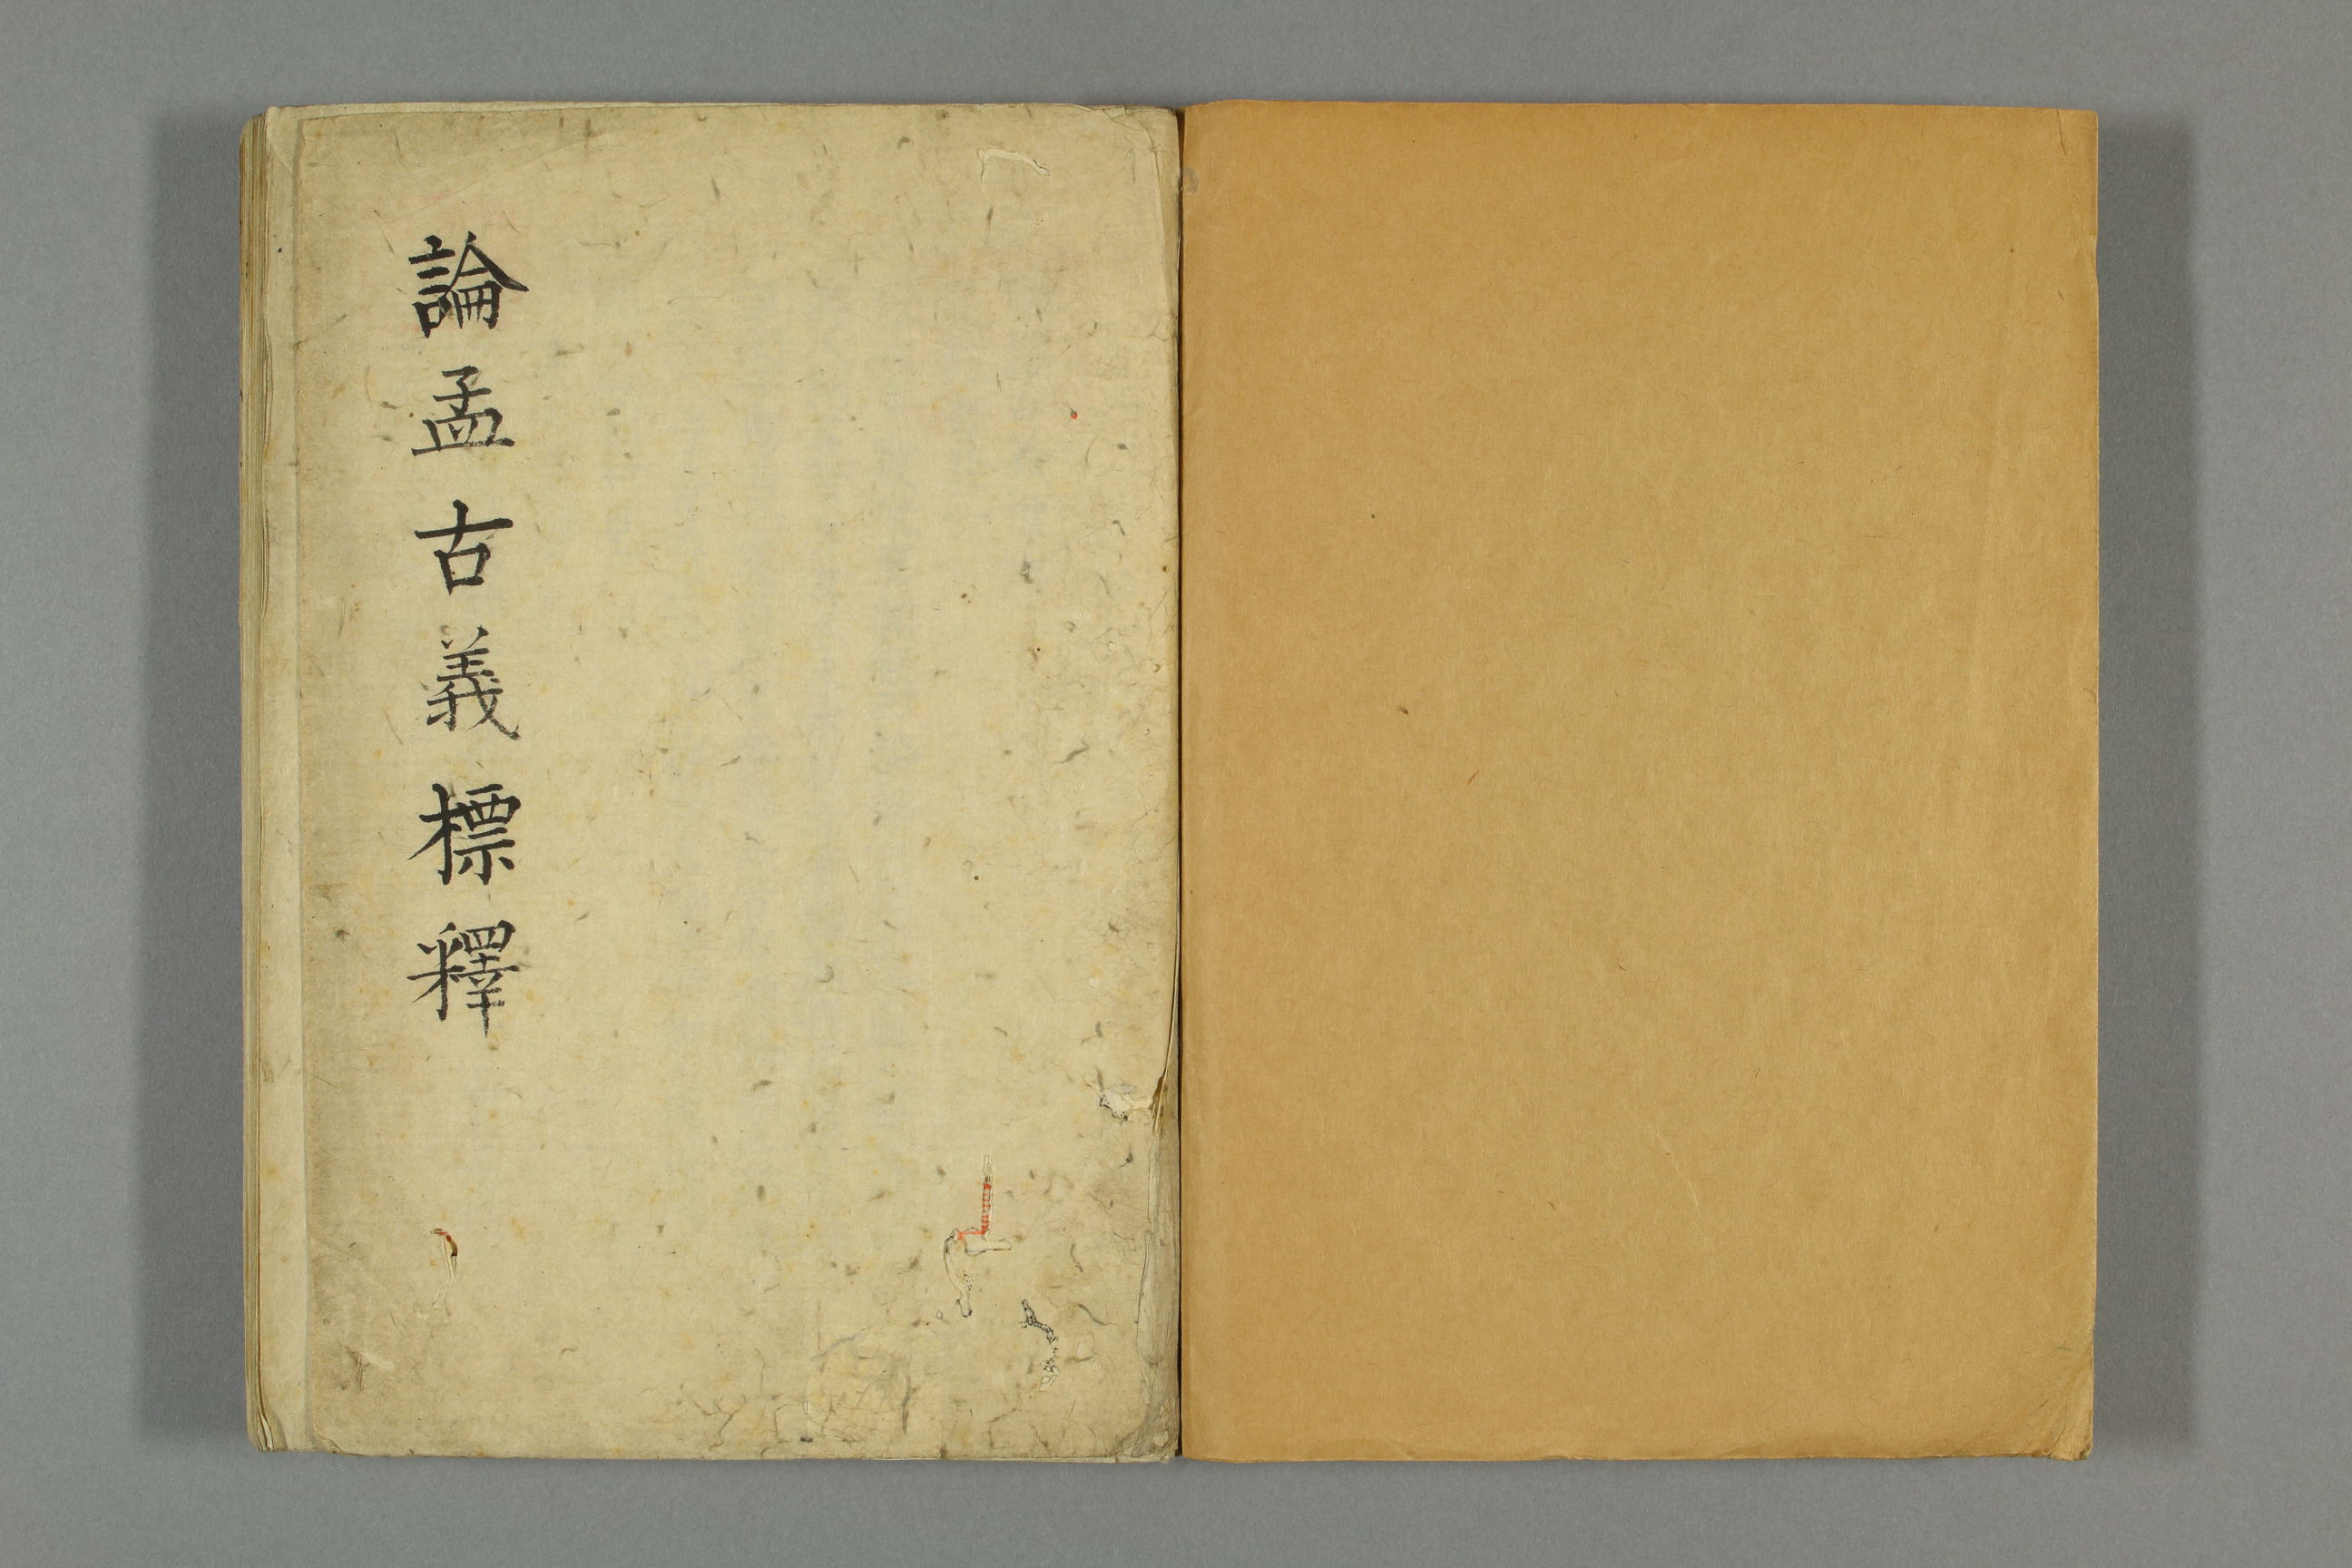 論孟古義標釋